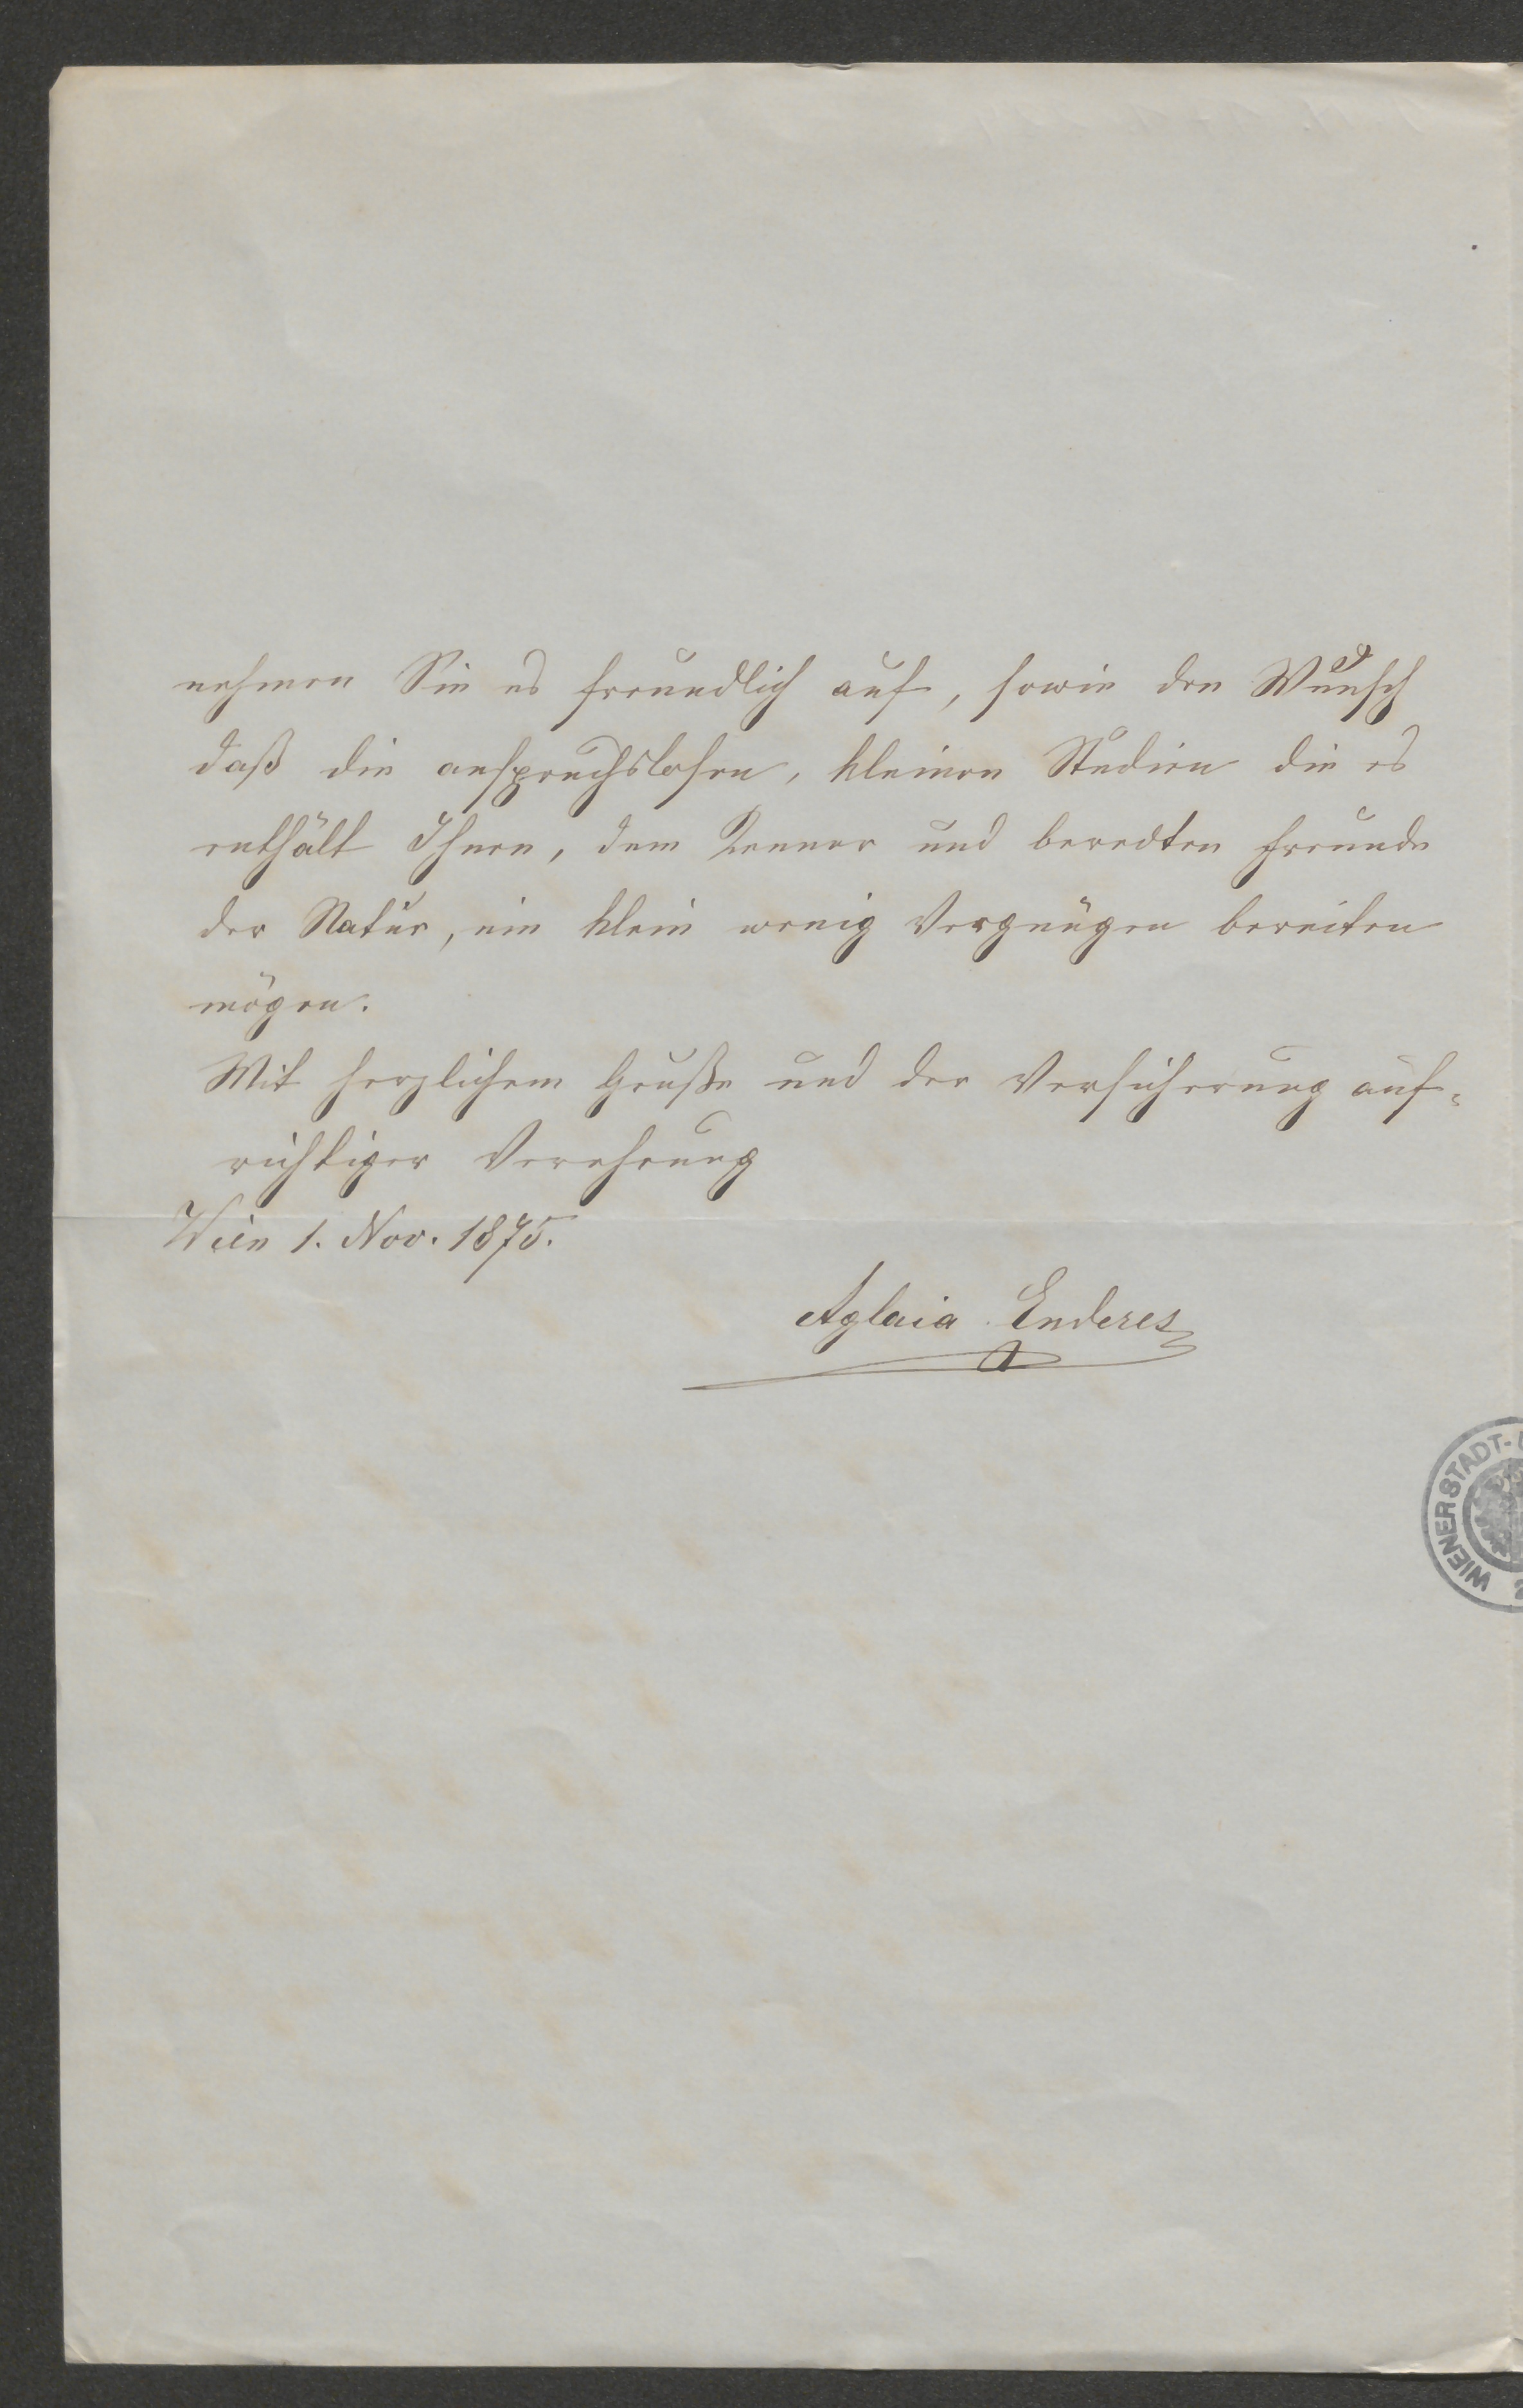 nehmen Sie es freundlich auf, sowie den Wunsch
daß die anspruchslosen, kleinen Studien die es
enthält Ihnen, dem Kenner und beredten Freunde
der Natur, ein klein wenig Vergnügen bereiten
mögen.
Mit herzlichem Gruße und der Versicherung auf-
richtiger Verehrung
Wien 1. Nov. 1875.
Aglaia Enderes
WIENER STADT-